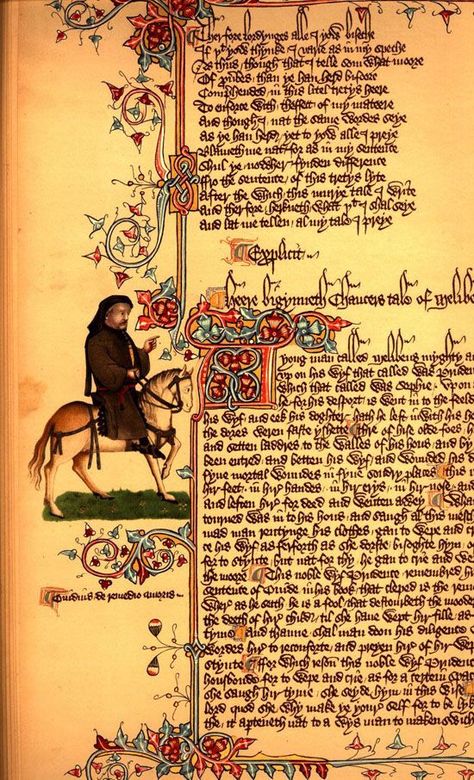 Therfore lordynges alle I yow biseche
If þt yow thynke I varie as in my speche
As thus, though that I telle som what moore
Of prouerbes, than ye han herd bifoore
Comprehended in this litel tretys heere
To enforce with theffect of my mateere
And though I nat the same wordes seye
As ye han herd, yet to yow alle I preye
Blameth me nat, for as in my sentence
Shul ye nowher fynden difference
Fro the sentence, of this tretys lyte
After the which this murye tale I write
And therfore herkneth what þt I shal seye
And lat me tellen al my tale I preye
Explicit
Heere bigynneth Chaucers tale of Melibe
A yong man called Melibeus mighty
up on his wyf that called was
which that called was Sophie / vpon
he for his desport is went in to the
his wyf and eek his doghter hath he left in with his
the dores weren faste yshette / Thre of hise olde foes
and setten laddres to the walles of his hous and by
been entred and betten his wyf and wounded his
fyue mortal woundes in fyue sondry places this
hir feet in hir handes in hir erys in hir nose and
and leften hir for deed and wenten awey
retourned was in to his hous and saugh al this
mad man rentynge his clothes gan to wepe and
his wyf as ferforth as she dorste bisoghte hym
for to stynte but nat for thy he gan to crie and
the moore This noble wyf Prudence remembred
sentence of Ouide in his book that cleped is the
Ouidius de remedio amoris
wher as he seith he is a fool that destourbeth the
the deeth of hir child til she haue wept hir fille
tyme and thanne shal man doon his diligence
wordes hir to reconforte and preyen hir of hir
stynte For which reson this noble wyf
housbonde for to wepe and crie as for a certein
she saugh hir tyme she seyde hym in this wise
lord quod she why make ye your self for to be
it aperteneth nat to a wys man to maken swich